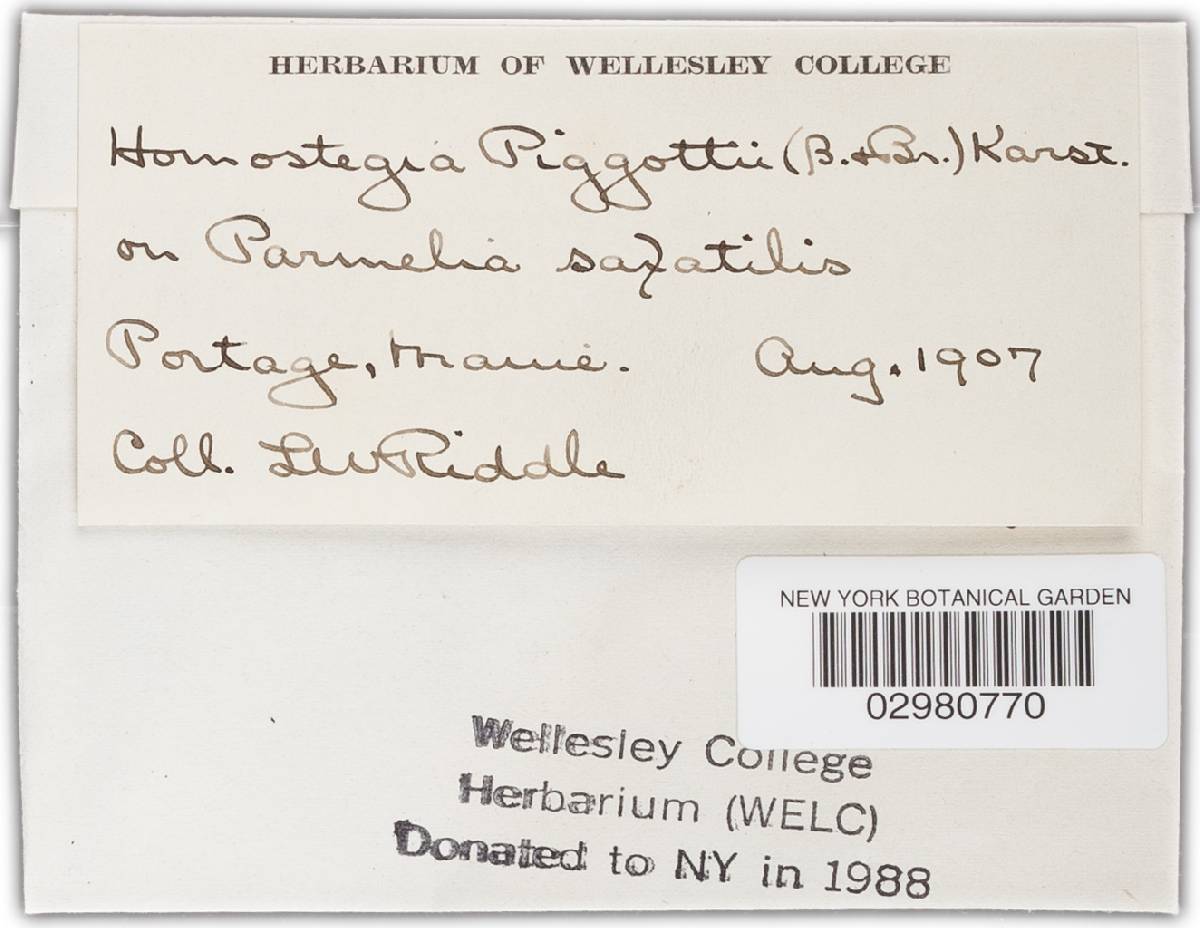 HERBARIUM OF WELLESLEY COLLEGE
Homostegia Piggottii (B. & Br.) Karst.
on Parmelia saxatilis
Portage, Maine. Aug. 1907
Coll. LW Riddle
NEW YORK BOTANICAL GARDEN
02980770
Wellesley College
Herbarium (WELC)
Donated to NY in 1988